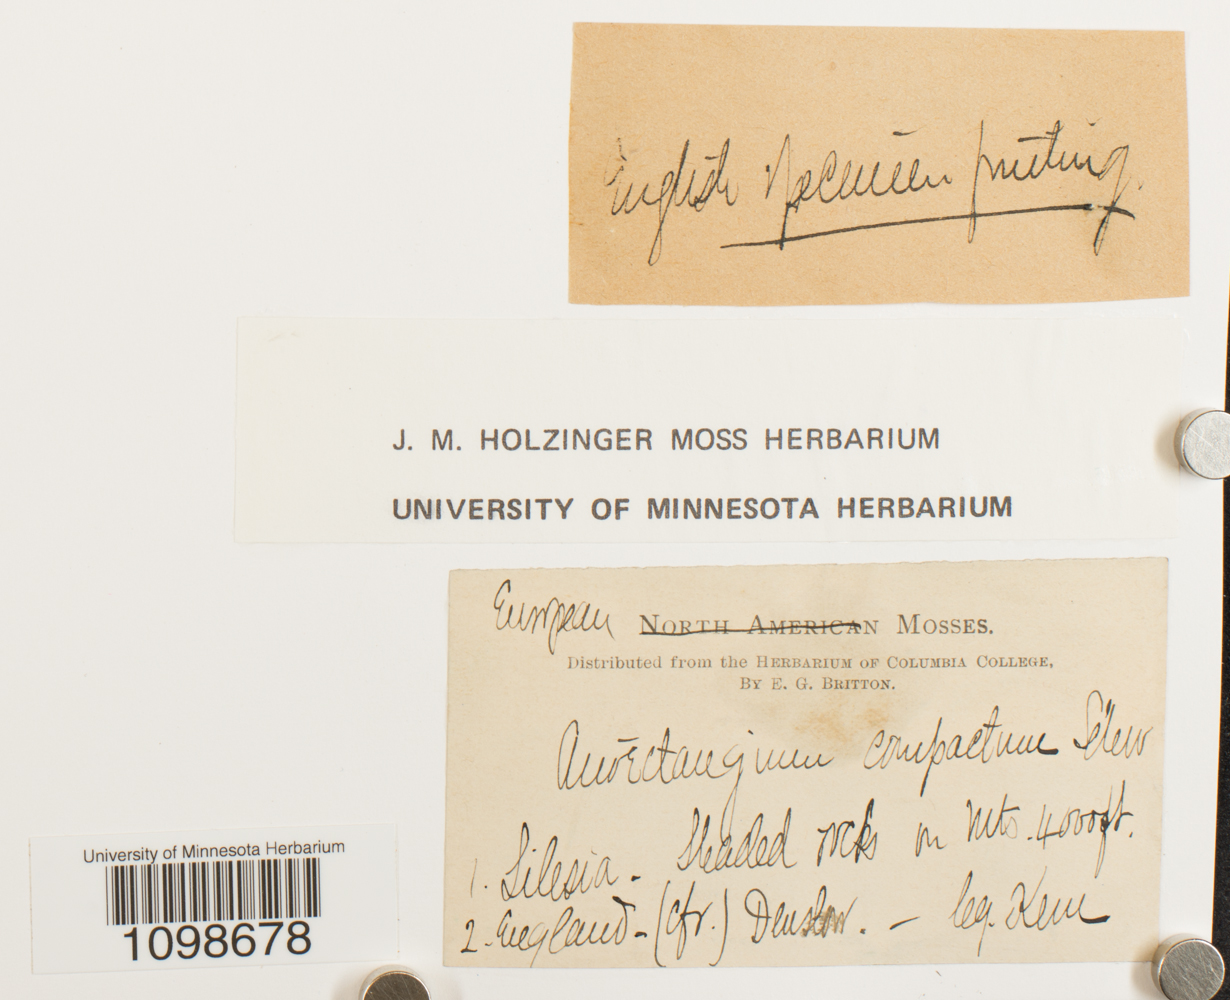 English specimen fruiting.
J. M. HOLZINGER MOSS HERBARIUM
UNIVERSITY OF MINNESOTA HERBARIUM
European NORTH AMERICAN MOSSES.
Distributed from the HERBARIUM OF COLUMBIA COLLEGE,
BY E. G. BRITTON.
Anoectangium compactum Schw
1. Silesia. Shaded rocks on Mts. 4000ft.
2. England - (cfr.) - leg. Kern
University of Minnesota Herbarium
1098678